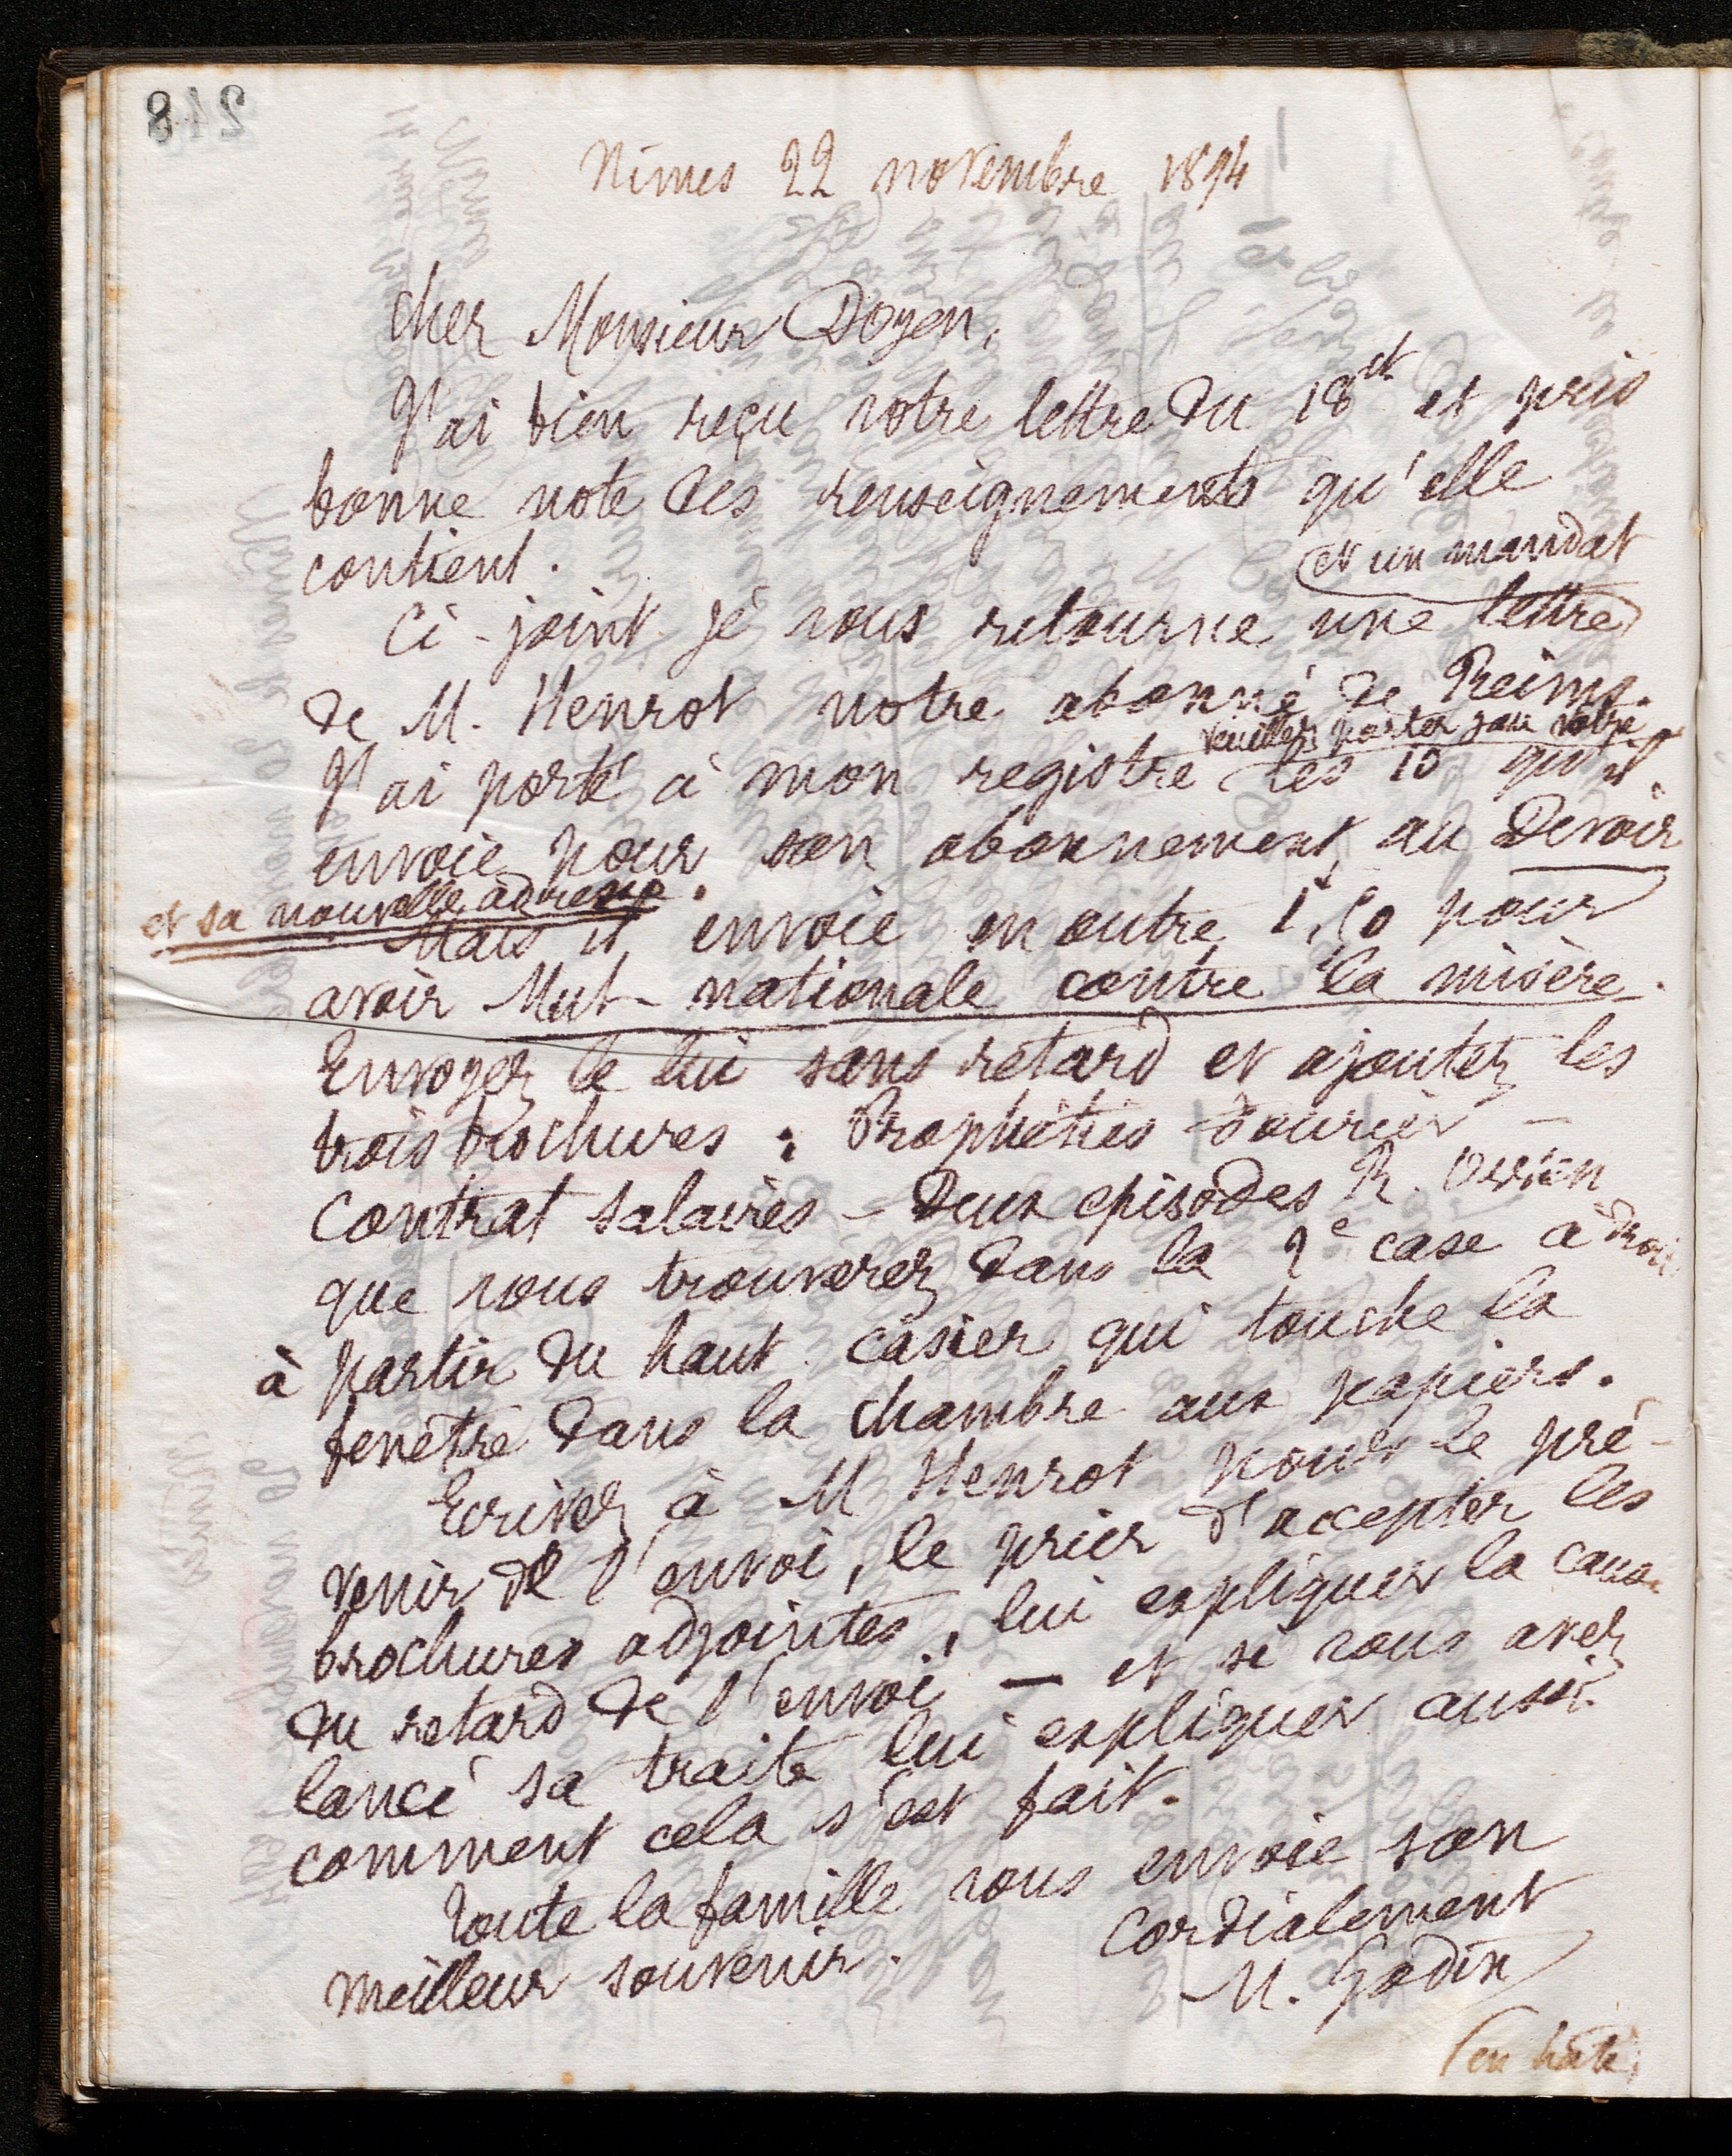 248
Nîmes 22 novembre 1894
Cher Monsieur Doyen,
J'ai bien reçu votre lettre du 18 ct et pris
bonne note des renseignements qu'elle
contient.
et un mandat
Ci-joint je vous retourne une lettre
de M. Henrot notre abonné de Reims.
veuillez porter sur votre
J'ai porté à mon registre les 10 qu'il
envoie pour son abonnement au Devoir
et sa nouvelle adresse.
Mais il envoie en outre 1,50 pour
avoir Mut- nationale contre la misère.
Envoyez le lui sans retard et ajoutez les
trois brochures : Prophéties Fourier –
Contrat salaires – Deux episodes R. Owen
que vous trouverez dans la 2e case à droite
à partir du haut casier qui touche la
fenêtre dans la chambre aux papiers.
Ecrivez à M Henrot pour le pré-
venir de l'envoi, le prier d'accepter les
brochures adjointes, lui expliquer la cause
du retard de l'envoi – et si vous avez
lancé sa traite lui expliquer aussi
comment cela s'est fait.
Toute la famille vous envoie son
meilleur souvenir. Cordialement
M. Godin
(en hâte)